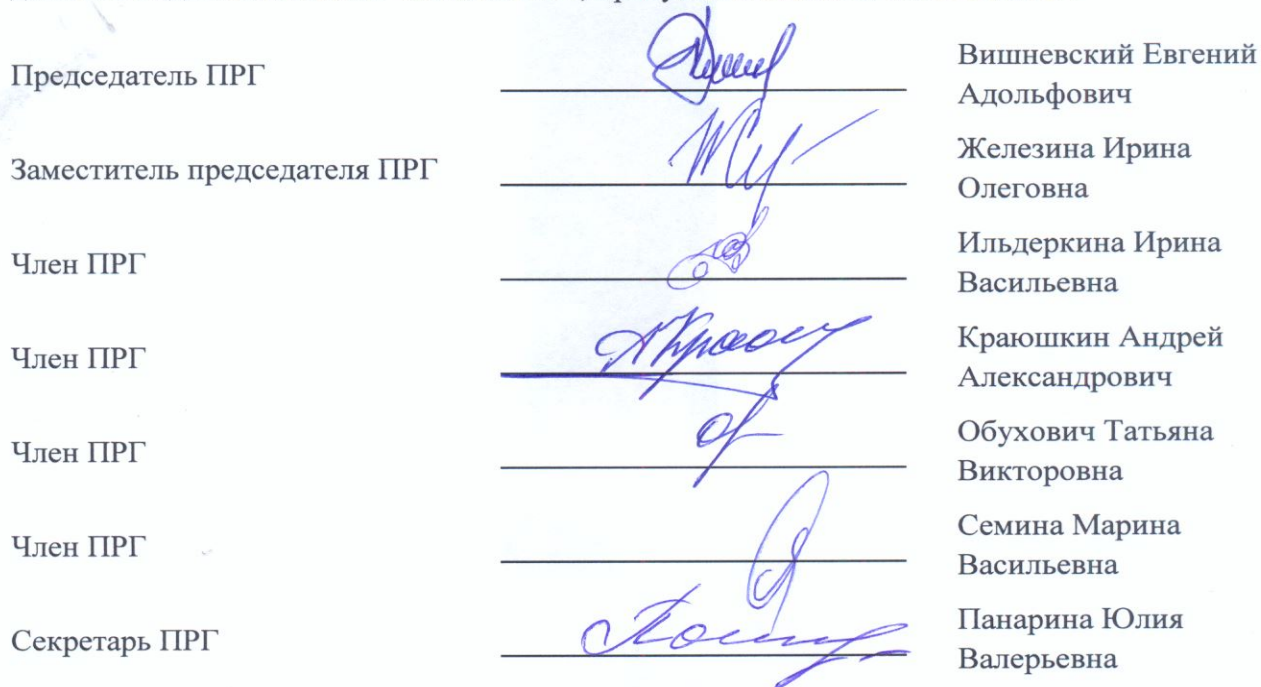 Председатель ПРГ
Вишневский Евгений
Адольфович
Заместитель председателя ПРГ
Железина Ирина
Олеговна
Член ПРГ
Ильдеркина Ирина
Васильевна
Член ПРГ
Краюшкин Андрей
Александрович
Член ПРГ
Обухович Татьяна
Викторовна
Член ПРГ
Семина Марина
Васильевна
Секретарь ПРГ
Панарина Юлия
Валерьевна